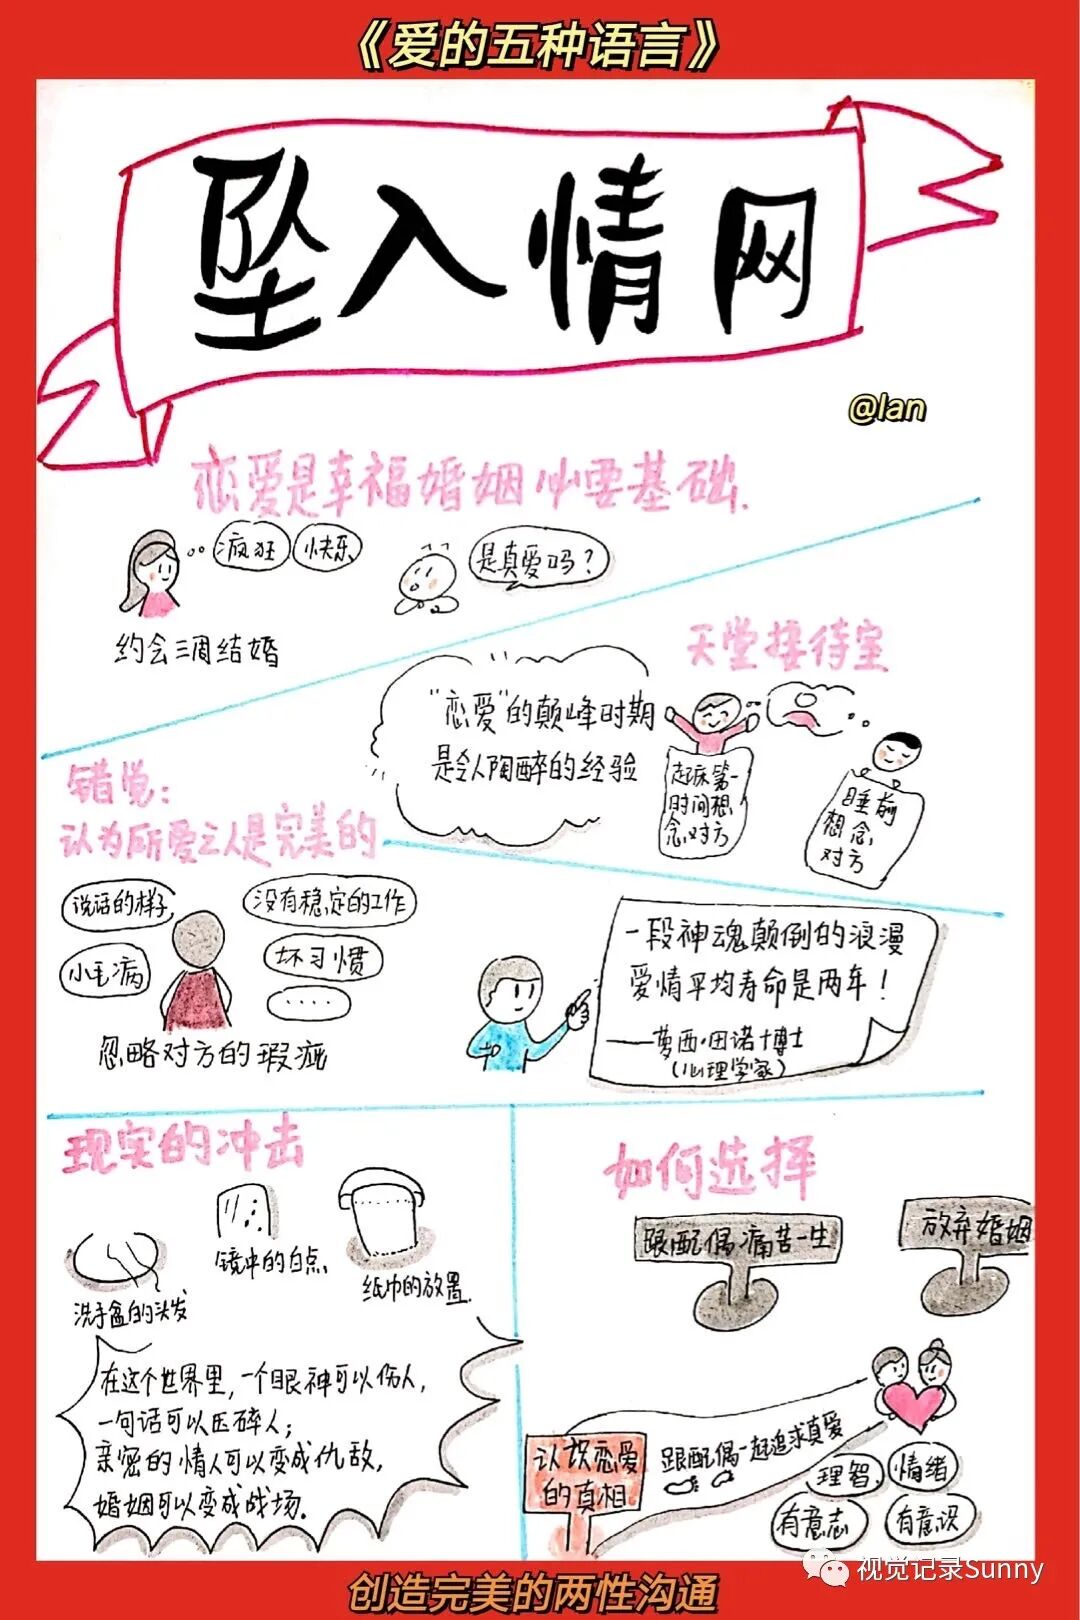 《爱的五种语言》
坠入情网
@lan
恋爱是幸福婚姻必要基础.
疯狂
快乐
是真爱吗？
约会三周结婚
天堂接待室
"恋爱"的颠峰时期
是令人陶醉的经验
起床第一
时间想
念对方
睡前
想念
对方
错觉：
认为所爱之人是完美的
说话的样子
没有稳定的工作
小毛病
坏习惯
......
忽略对方的瑕疵
一段神魂颠倒的浪漫
爱情平均寿命是两年！
——萝西·田诺博士
（心理学家）
现实的冲击
镜中的白点
洗手盆的头发
纸巾的放置.
在这个世界里，一个眼神可以伤人，
一句话可以压碎人；
亲密的情人可以变成仇敌，
婚姻可以变成战场.
如何选择
跟配偶痛苦一生
放弃婚姻
认识恋爱
的真相
跟配偶一起追求真爱
理智
情绪
有意志
有意识
视觉记录Sunny
创造完美的两性沟通